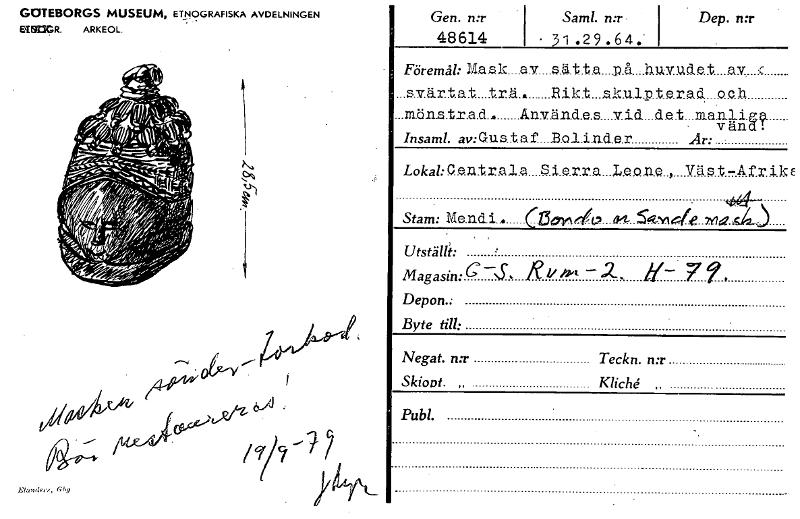 GÖTEBORGS MUSEUM, ETNOGRAFISKA AVDELNINGEN
ARKEOL.
28,5 cm.
Masken sönder-torkad.
Bör restaureras!
19/9-79
Elanders, Gbg
Gen. n:r
48614
Saml. n:r
31.29.64.
Dep. n:r
Föremål: Mask av sätta på huvudet av
svärtat trä. Rikt skulpterad och
mönstrad. Användes vid det manliga
vänd!
Insaml. av: Gustaf Bolinder År:
Lokal: Centrala Sierra Leone, Väst-Afrika
Stam: Mendi. (Bondo n Sande mask)
Utställt:
Magasin: G-S. Rum-2. H-79.
Depon.:
Byte till:
Negat. n:r Teckn. n:r
Skiopt. „ Kliché „
Publ.